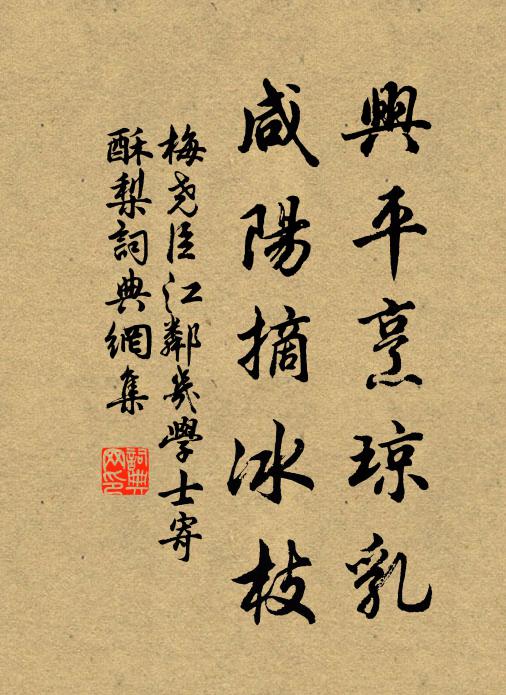 興平烹琼乳
咸陽摘冰枝
梅尧臣江鄰幾學士寄
酥梨詞典網集
詞典網印